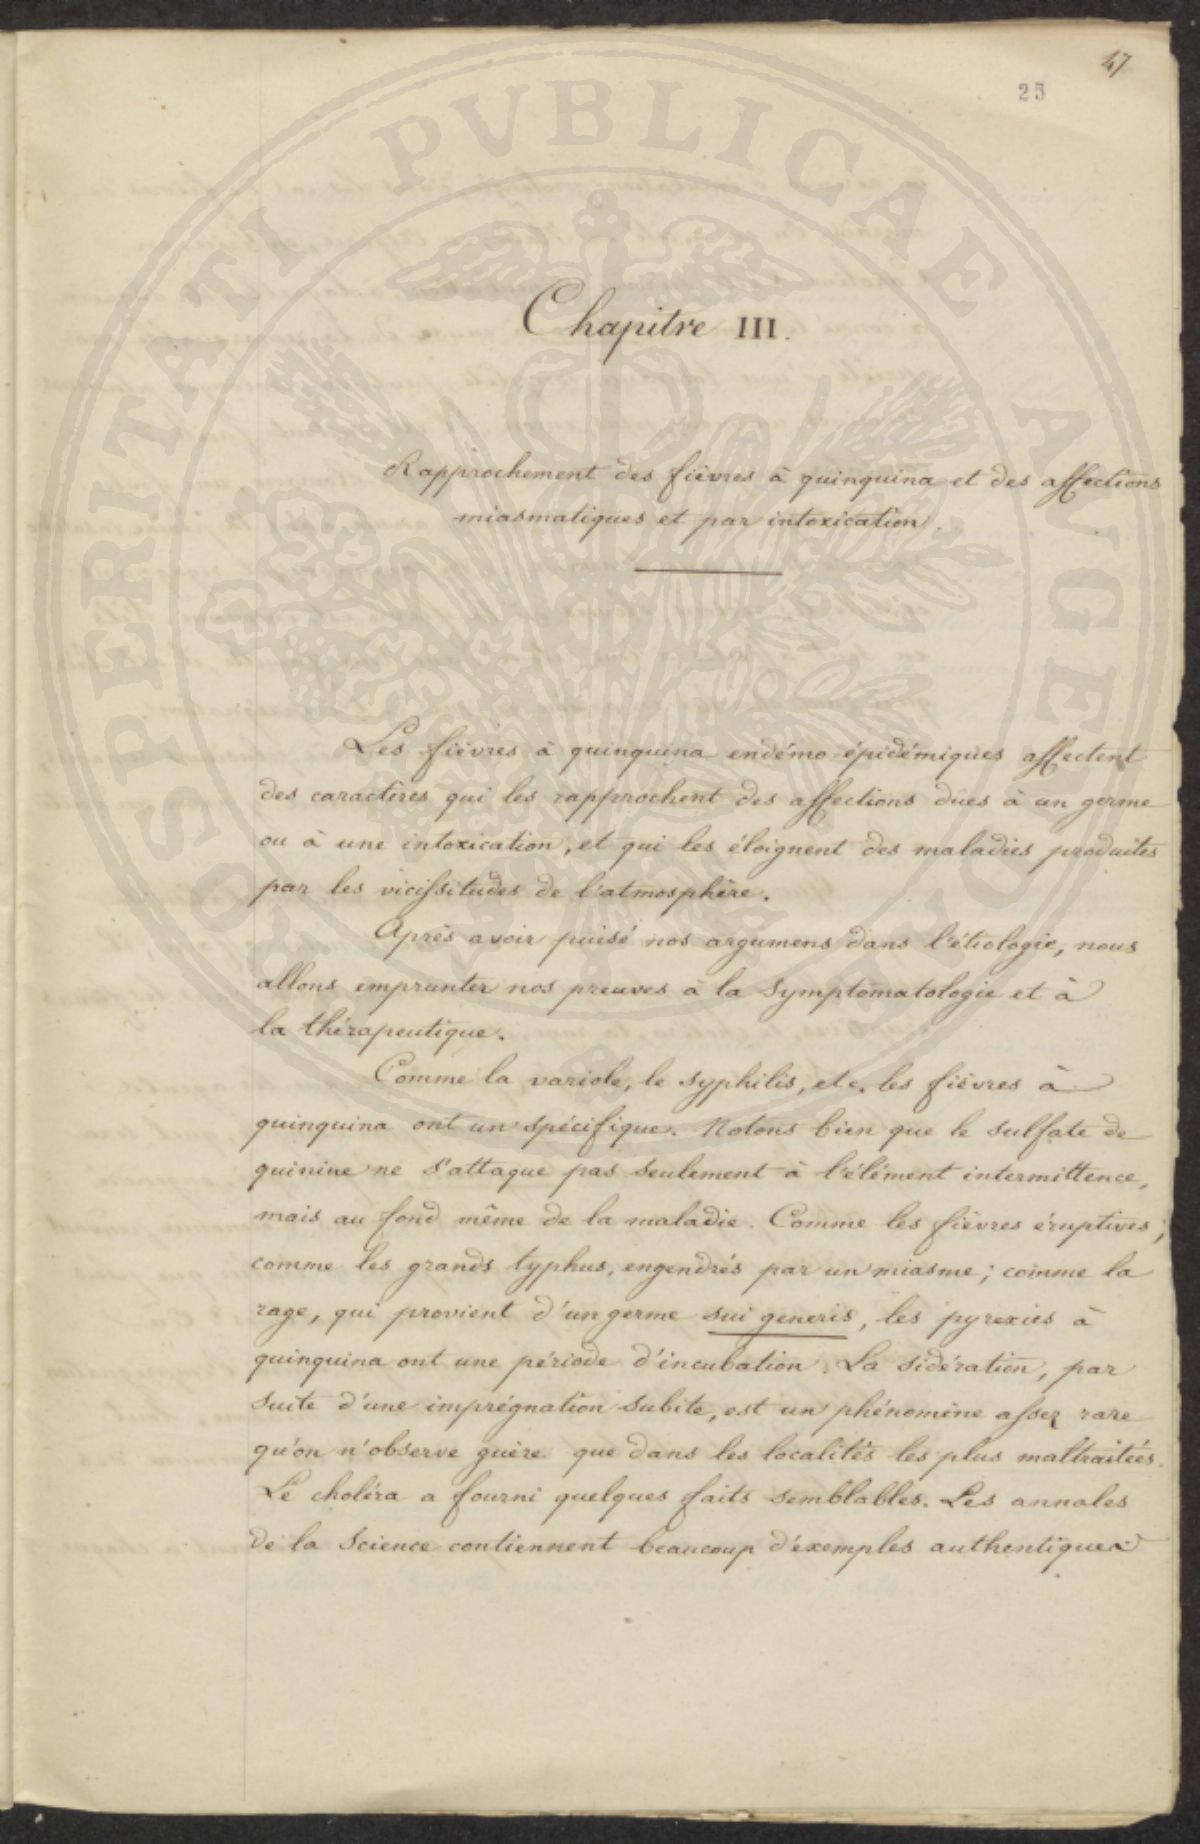 47
25
Chapitre III.
Rapprochement des fièvres à quinquina et des affections
miasmatiques et par intoxication.
Les fièvres à quinquina endémo-épidémiques affectent
des caractères qui les rapprochent des affections dues à un germe
ou à une intoxication, et qui les éloignent des maladies produites
par les vicissitudes de l'atmosphère.
Après avoir puisé nos argumens dans l'étiologie, nous
allons emprunter nos preuves à la symptômatologie et à
la thérapeutique.
Comme la variole, le syphilis, etc. les fièvres à
quinquina ont un spécifique. Notons bien que le sulfate de
quinine ne s'attaque pas seulement à l'élément intermittence,
mais au fond même de la maladie. Comme les fièvres éruptives;
comme les grands typhus, engendrés par un miasme; comme la
rage, qui provient d'un germe sui generis, les pyrexies à
quinquina ont une période d'incubation. La sidération, par
suite d'une imprégnation subite, est un phénomène assez rare
qu'on n'observe guère que dans les localités les plus maltraitées.
Le choléra a fourni quelques faits semblables. Les annales
de la Science contiennent beaucoup d'exemples authentiques
PROSPERITATI PVBLICAE AVGENDAE